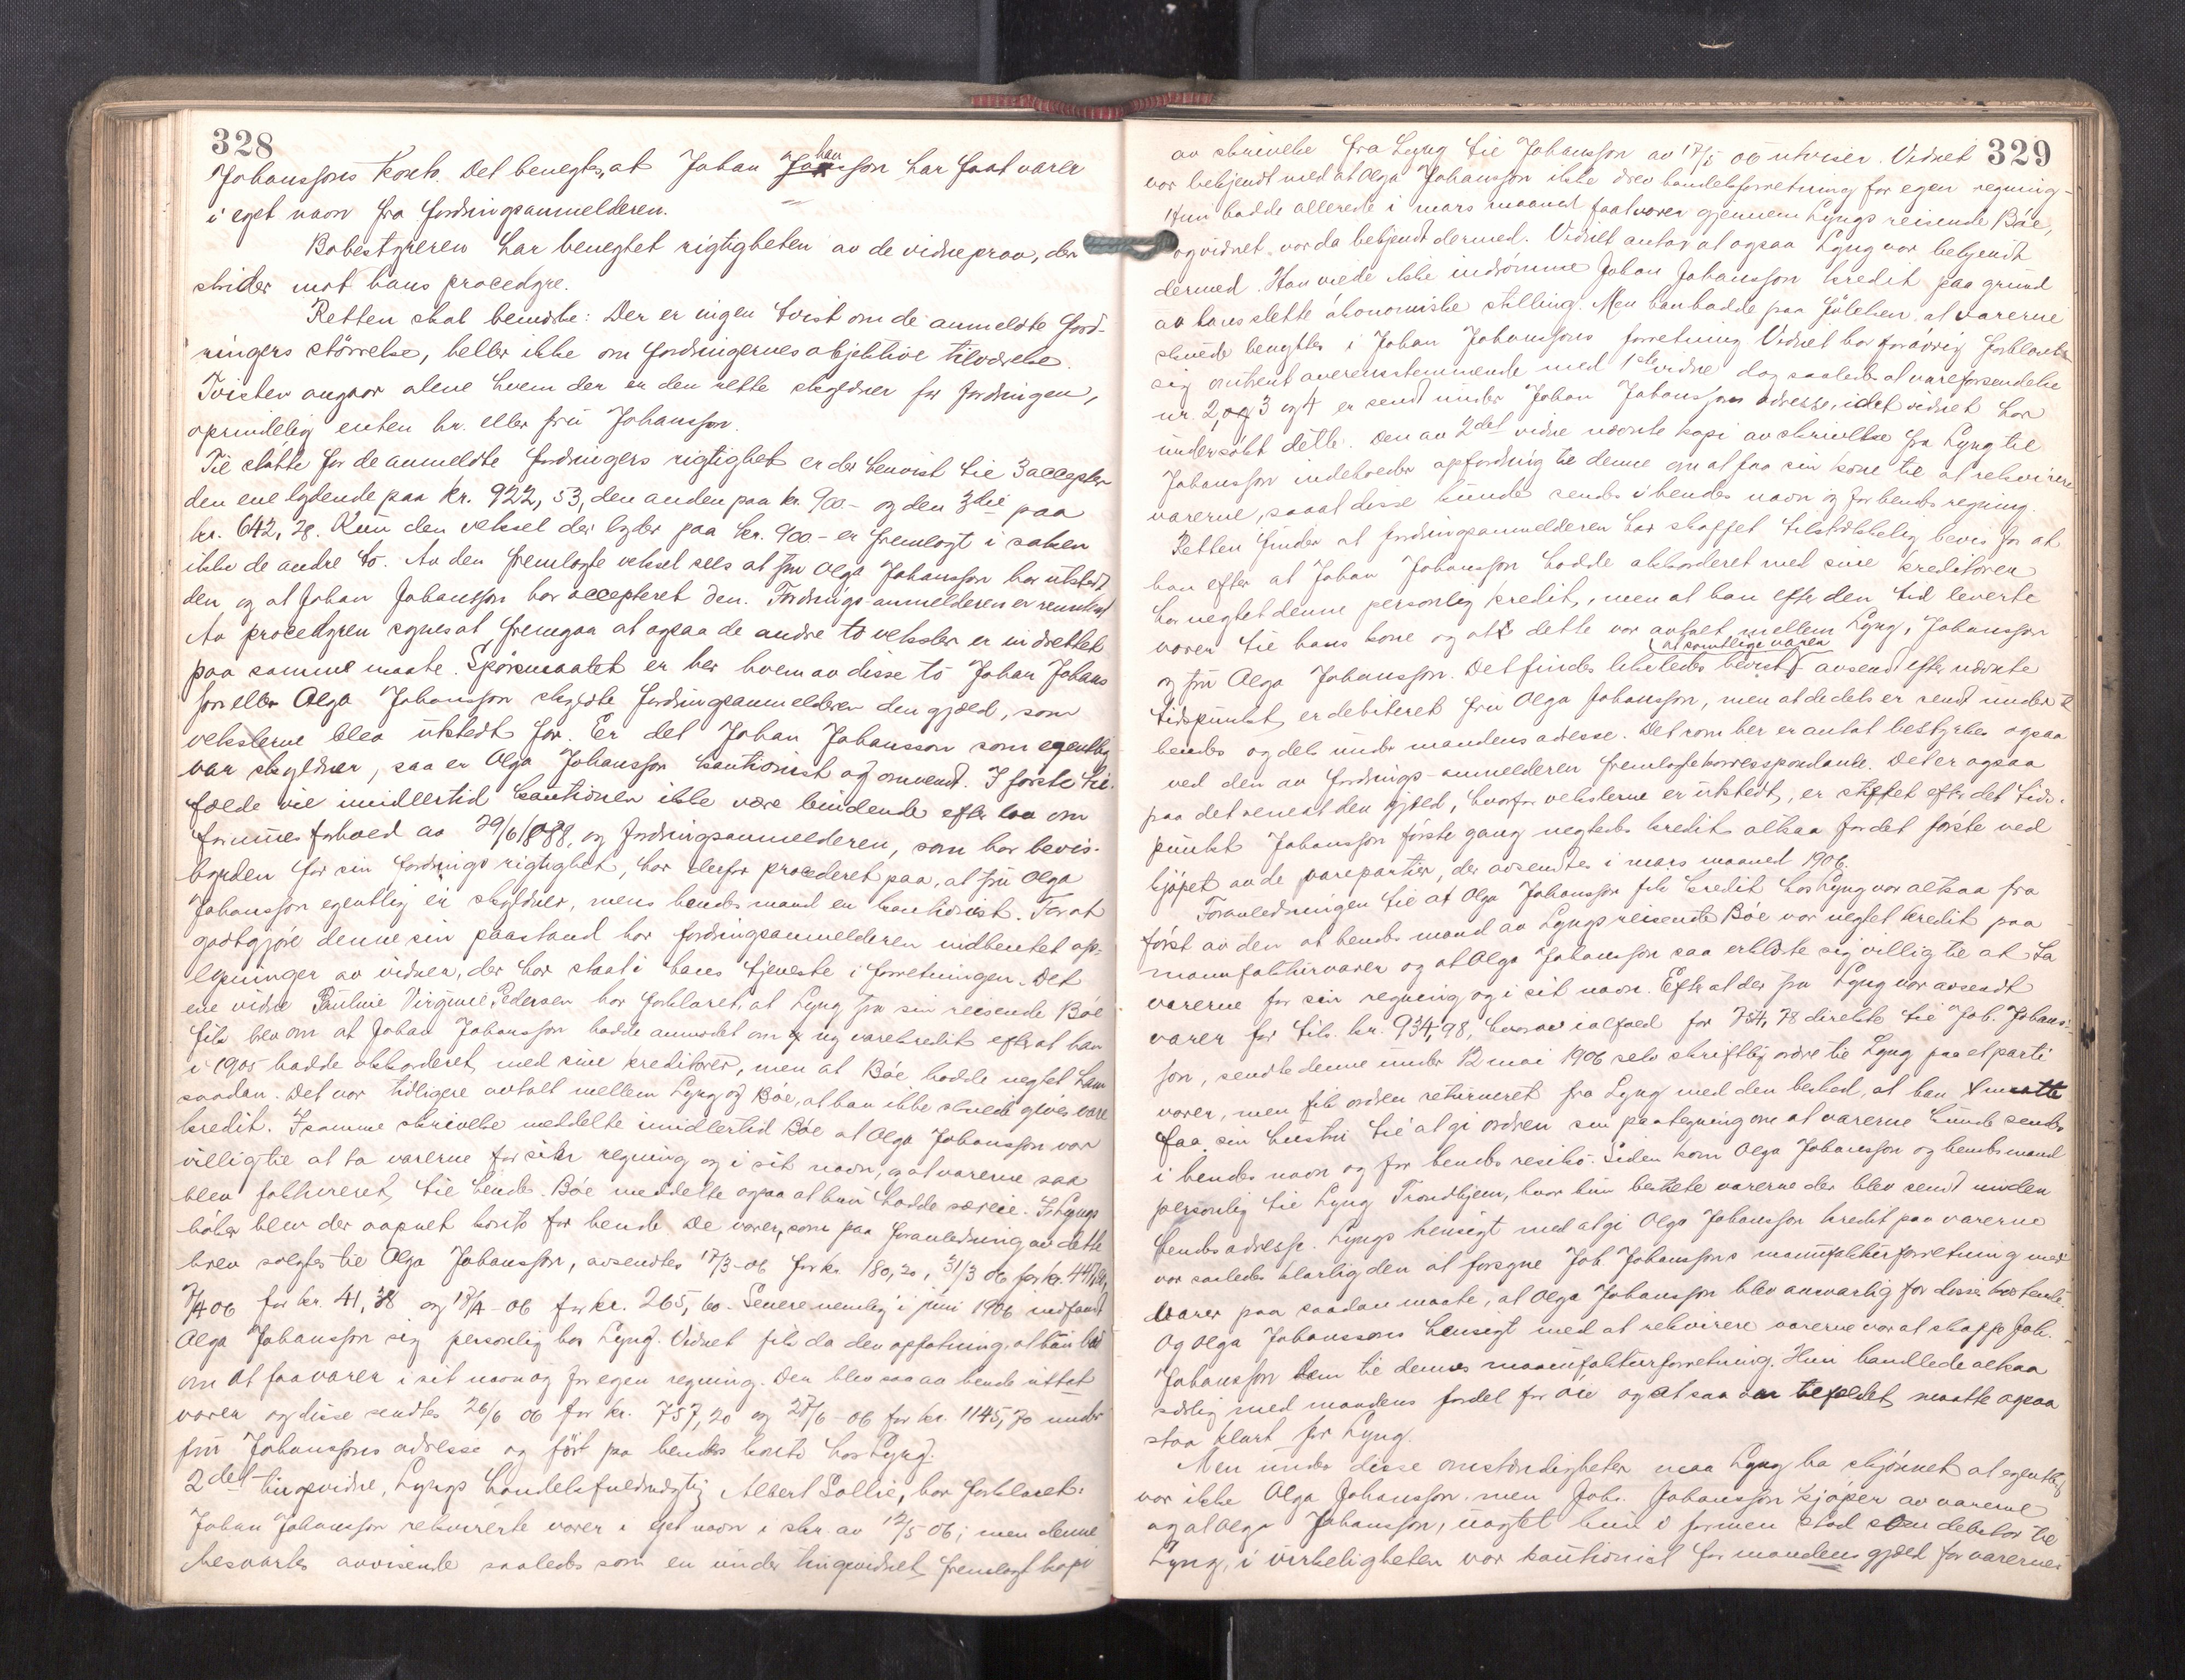 328
Johanssons konto. Det benegtes, at Johan Johansson har faat varer
i eget navn fra fordringsanmelderen.
Bobestyreren har benegtet rigtigheten av de vidneprov, der
strider mot hans procedyre.
Retten skal bemerke: Der er ingen tvist om de anmeldte ford-
ringers størrelse, heller ikke om fordringernes objektive tilværelse.
Tvisten angaar alene hvem der er den rette skyldner for fordringen,
oprindelig enten hr. eller fru Johansson.
Til støtte for de anmeldte fordringers rigtighet er der henvist til 3 accepter
den ene lydende paa kr. 922,53, den anden paa kr. 900- og den 3die paa
kr. 642,28. Kun den veksel der lyder paa kr. 900- er fremlagt i saken
ikke de andre to. Av den fremlagte veksel sees at fru Olga Johansson har utstedt
den, og at Johan Johansson har accepteret den. Fordrings-anmelderen er remittent
Av procedyren synes at fremgaa at ogsaa de andre to veksler er indrettet
paa samme maate. Spörsmaalet er her hvem av disse to Johan Johans
son eller Olga Johansson skyldte fordringsanmelderen den gjæld, som
vekslerne blev utstedt for. Er det Johan Johansson som egentlig
var skyldner, saa er Olga Johansson kautionist og omvendt. I første til-
fælde vil imidlertid kautionen ikke være bindende efter lov om
formuesforhold av 29/6 1888, og fordringsanmelderen, som har bevis-
byrden for sin fordrings rigtighet, har derfor procederet paa, at fru Olga
Johansson egentlig er skyldner, mens hendes mand er kautionist. For at
godtgjøre denne sin paastand har fordringsanmelderen indhentet op-
lysninger av vidner, der har staat i hans tjeneste i forretningen. Det
ene vidne Pauline Virginie Pedersen har forklaret, at Lyng fra sin reisende Bóe
fik brev om at Johan Johansson hadde anmodet om ny varekredit efter at han
i 1905 hadde akkorderet med sine kreditorer, men at Bóe hadde negtet ham
saadan. Det var tidligere avtalt mellem Lyng og Bóe, at han ikke skulde gives vare
kredit. I samme skrivelse meddelte imidlertid Bóe at Olga Johansson var
villig til at ta varerne for sin regning og i sit navn, og at varerne saa
blev faktureret til hende. Bóe meddelte ogsaa at hun hadde særeie. I Lyngs
bøker blev der aapnet konto for hende. De varer, som paa foranledning av dette
brev solgtes til Olga Johansson, avsendtes 17/3-06 for kr. 180,20, 31/3 06 for kr. 447,
7/4 06 for kr. 41,38 og 18/4-06 for kr. 265,60. Senere nemlig i juni 1906 indfandt
Olga Johansson sig personlig hos Lyng. Vidnet fik da den opfatning, at hun bad
om at faa varer i sit navn og for egen regning. Der blev saa av hende uttat
varer og disse sendtes 26/6 06 for kr. 757,20 og 27/6-06 for kr. 1145,70 under
fru Johanssons adresse og ført paa hendes konto hos Lyng.
2det tingsvidne, Lyngs handelsfuldmægtig Albert Sollie, har forklaret:
Johan Johansson rekvirerte varer i eget navn i skr. av 12/5 06; men denne
besvartes avvisende saaledes som en under tingsvidnet fremlagt kopi
329
av skrivelse fra Lyng til Johansson av 17/5 06 utviser. Vidnet
var bekjendt med at Olga Johansson ikke drev handelsforretning for egen regning-
Hun hadde allerede i mars maaned faat varer gjennem Lyngs reisende Bóe,
og vidnet var da bekjendt dermed. Vidnet antar at ogsaa Lyng var bekjendt
dermed. Han vilde ikke indrømme Johan Johansson kredit paa grund
av hans slette økonomiske stilling. Men han hadde paa følelsen at varerne
skulde benyttes i Johan Johanssons forretning. Vidnet har forøvrig forklaret
sig omtrent overensstemmende med 1ste vidne dog saaledes at vareforsendelse
nr. 2, og 3 og 4 er sendt under Johan Johanssons adresse, idet vidnet har
undersøkt dette. Den av 2det vidne nævnte kopi av skrivelse fra Lyng til
Johansson indeholder opfordring til denne om at faa sin kone til at rekvirere
varerne, saaat disse kunde sendes i hendes navn og for hendes regning.
Retten finder at fordringsanmelderen har skaffet tilstrækkelig bevis for at
han efter at Johan Johansson hadde akkorderet med sine kreditorer
har negtet denne personlig kredit, men at han efter den tid leverte
varer til hans kone og at dette var avtalt mellem Lyng, Johansson
og fru Olga Johansson. Det findes likeledes bevist at samtlige varer avsendt efter nævnte
tidspunkt er debiteret fru Olga Johansson, men at de dels er sendt under
hendes og dels under mandens adresse. Det som her er antat bestyrkes ogsaa
ved den av fordrings-anmelderen fremlagte korrespondance. Det er ogsaa
paa det rene at den gjæld, hvorfor vekslerne er utstedt, er stiftet efter det tids-
punkt Johansson første gang negtedes kredit altsaa for det første ved
kjøpet av de varepartier, der avsendtes i mars maaned 1906.
Foranledningen til at Olga Johansson fik kredit hos Lyng var altsaa fra
først av den at hendes mand av Lyngs reisende Bóe var negtet kredit paa
manufakturvarer og at Olga Johansson saa erklærte sig villig til at ta
varerne for sin regning og i sit navn. Efter at der fra Lyng var avsendt
varer for tils. kr. 934,98, hvorav ialfald for 754,78 direkte til Joh. Johans-
son, sendte denne under 12 mai 1906 selv skriftlig ordre til Lyng paa et parti
varer, men fik ordren returneret fra Lyng med den besked, at han maatte
faa sin hustru til at gi ordren sin paategning om at varerne kunde sendes
i hendes navn og for hendes resikó. Siden kom Olga Johansson og hendes mand
personlig til Lyng Trondhjem, hvor hun bestilte varerne der blev sendt under
hendes adresse. Lyngs hensigt med at gi Olga Johansson kredit paa varerne
var saaledes klarlig den at forsyne Joh Johanssons manufakturforretning med
varer paa saadan maate, at Olga Johansson blev ansvarlig for disses
Og Olga Johanssons hensigt med at rekvirere varerne var at skaffe Joh.
Johansson dem til dennes manufakturforretning. Hun handlede altsaa
særlig med mandens fordel for øie og at saa var tilfældet maatte ogsaa
staa klart for Lyng.
Men under disse omstændigheter maa Lyng ha skjønnet at egentlig
var ikke Olga Johansson, men Joh. Johansson kjøper av varerne
og at Olga Johansson, uagtet hun i formen stod som debitor til
Lyng, i virkeligheten var kautionist for mandens gjæld for varernes